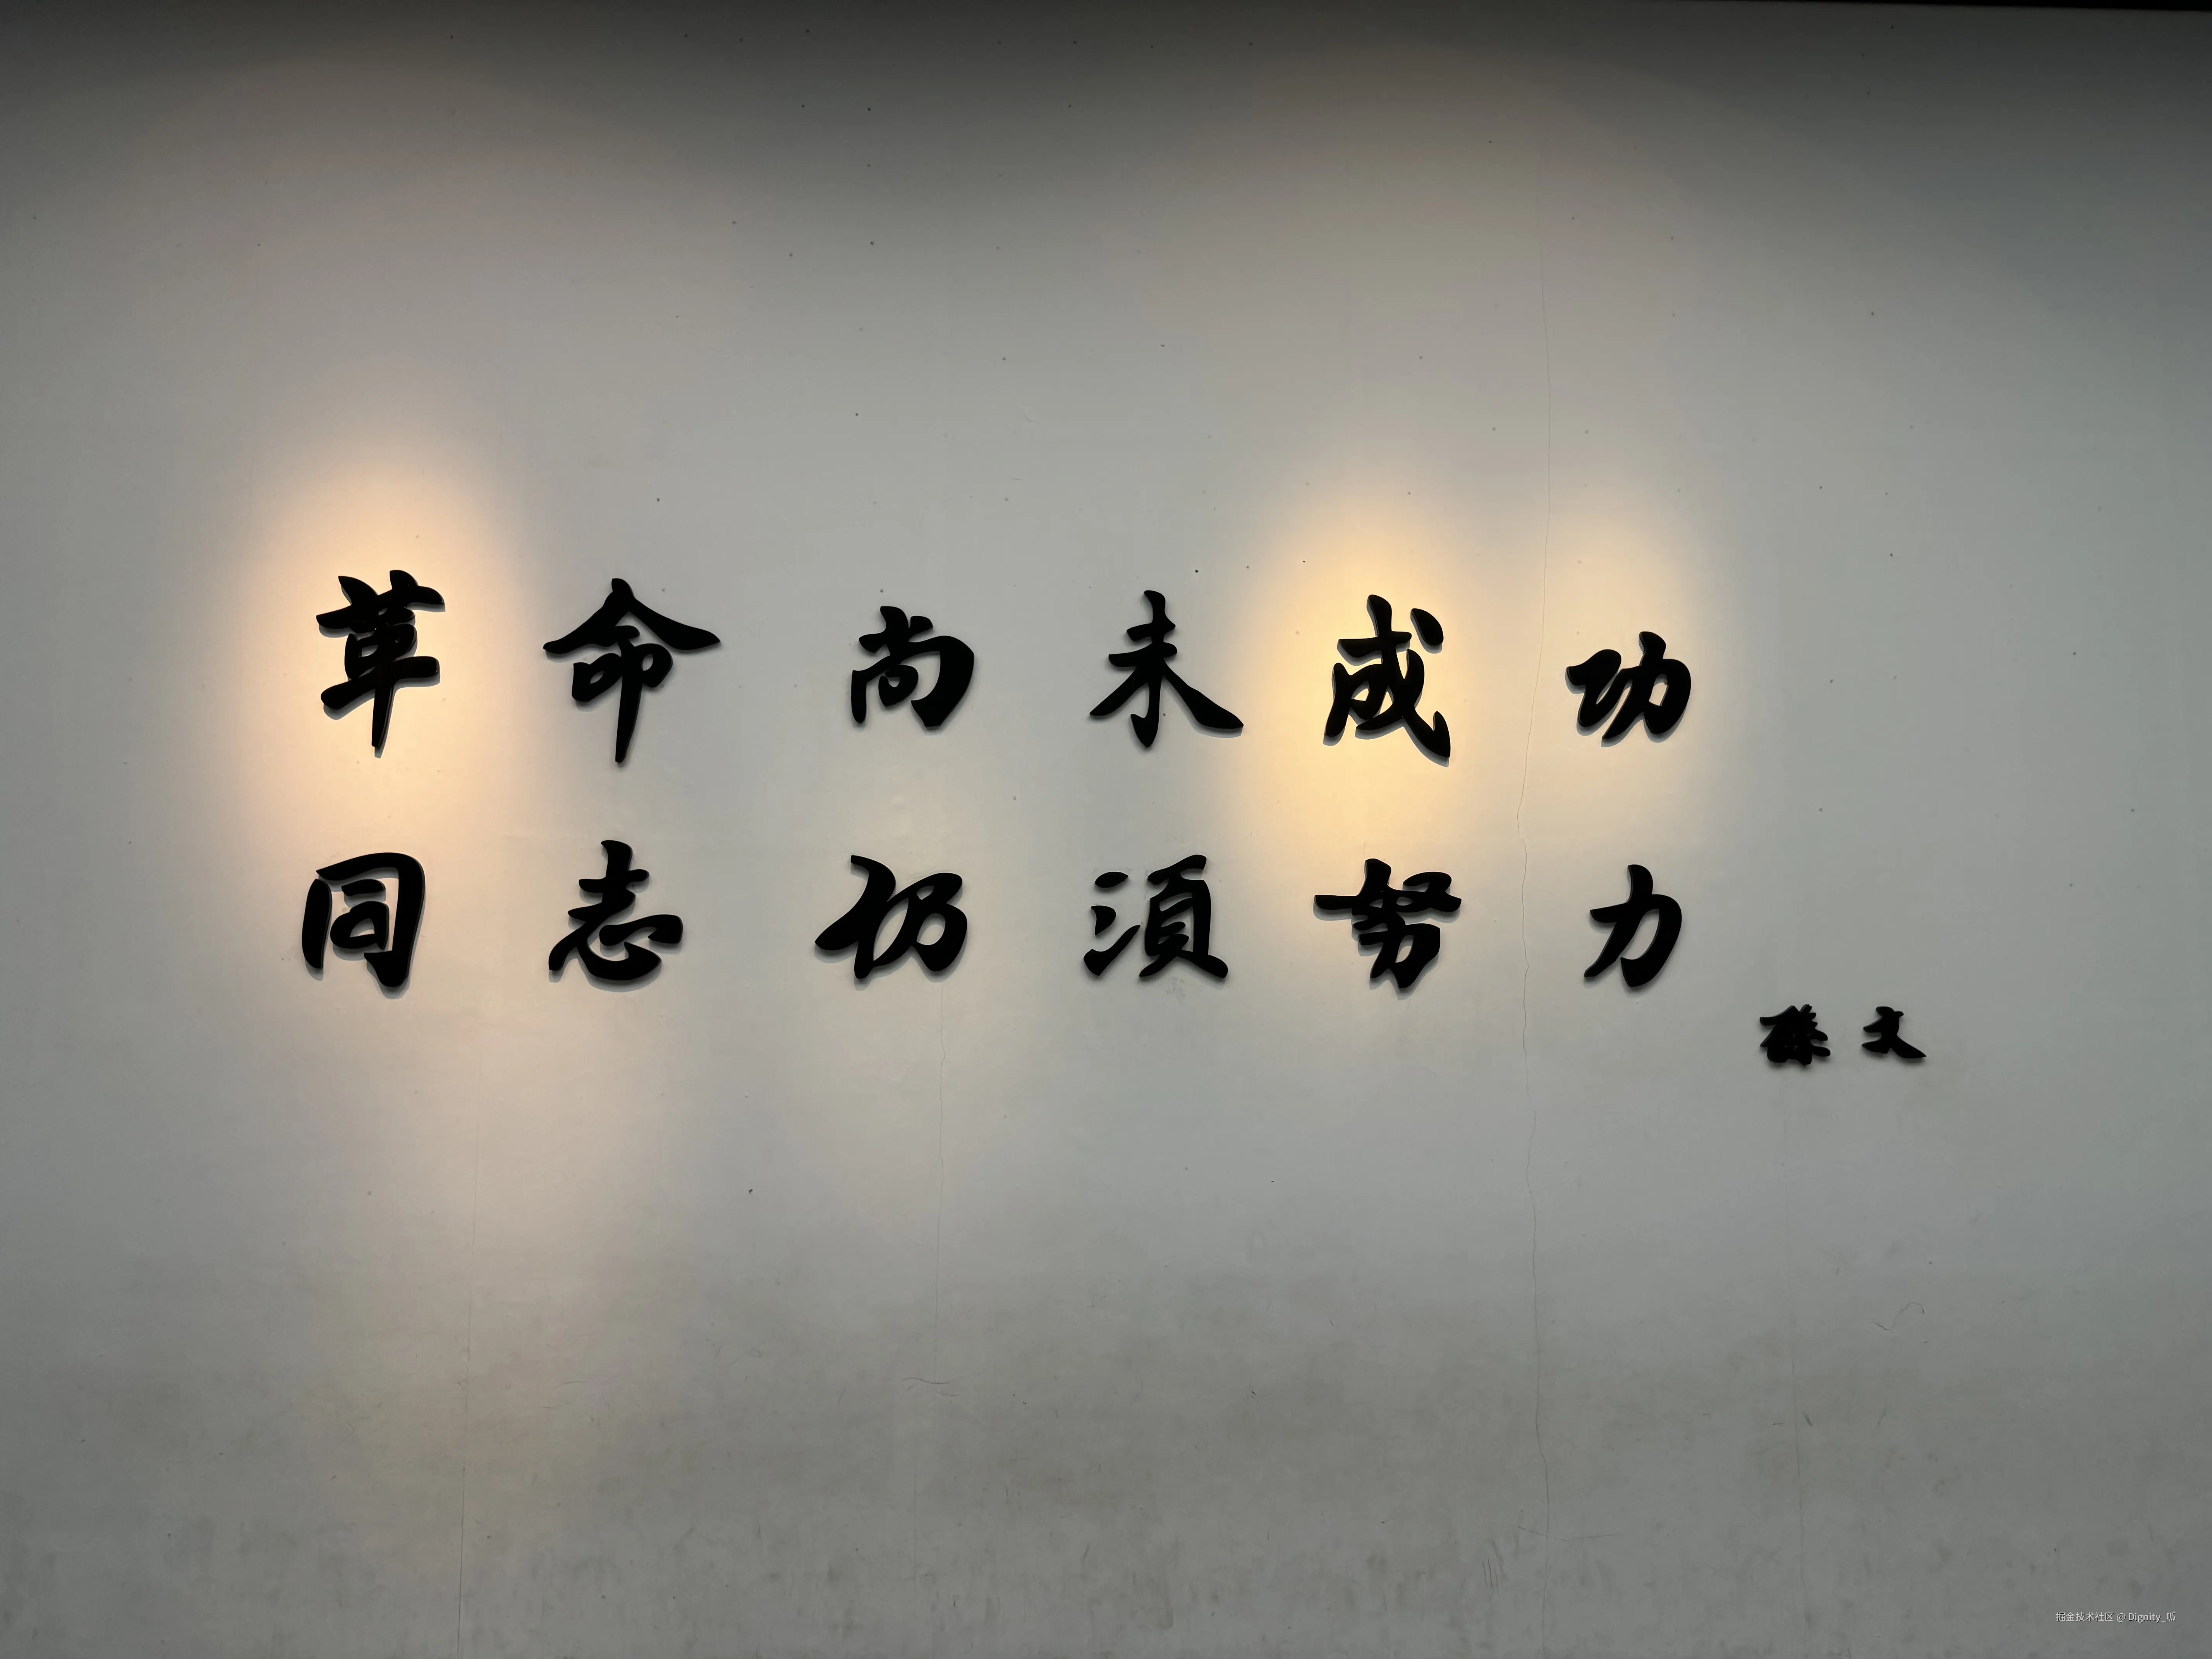 革命尚未成功
同志仍須努力
孫文
掘金技术社区 @ Dignity_呱